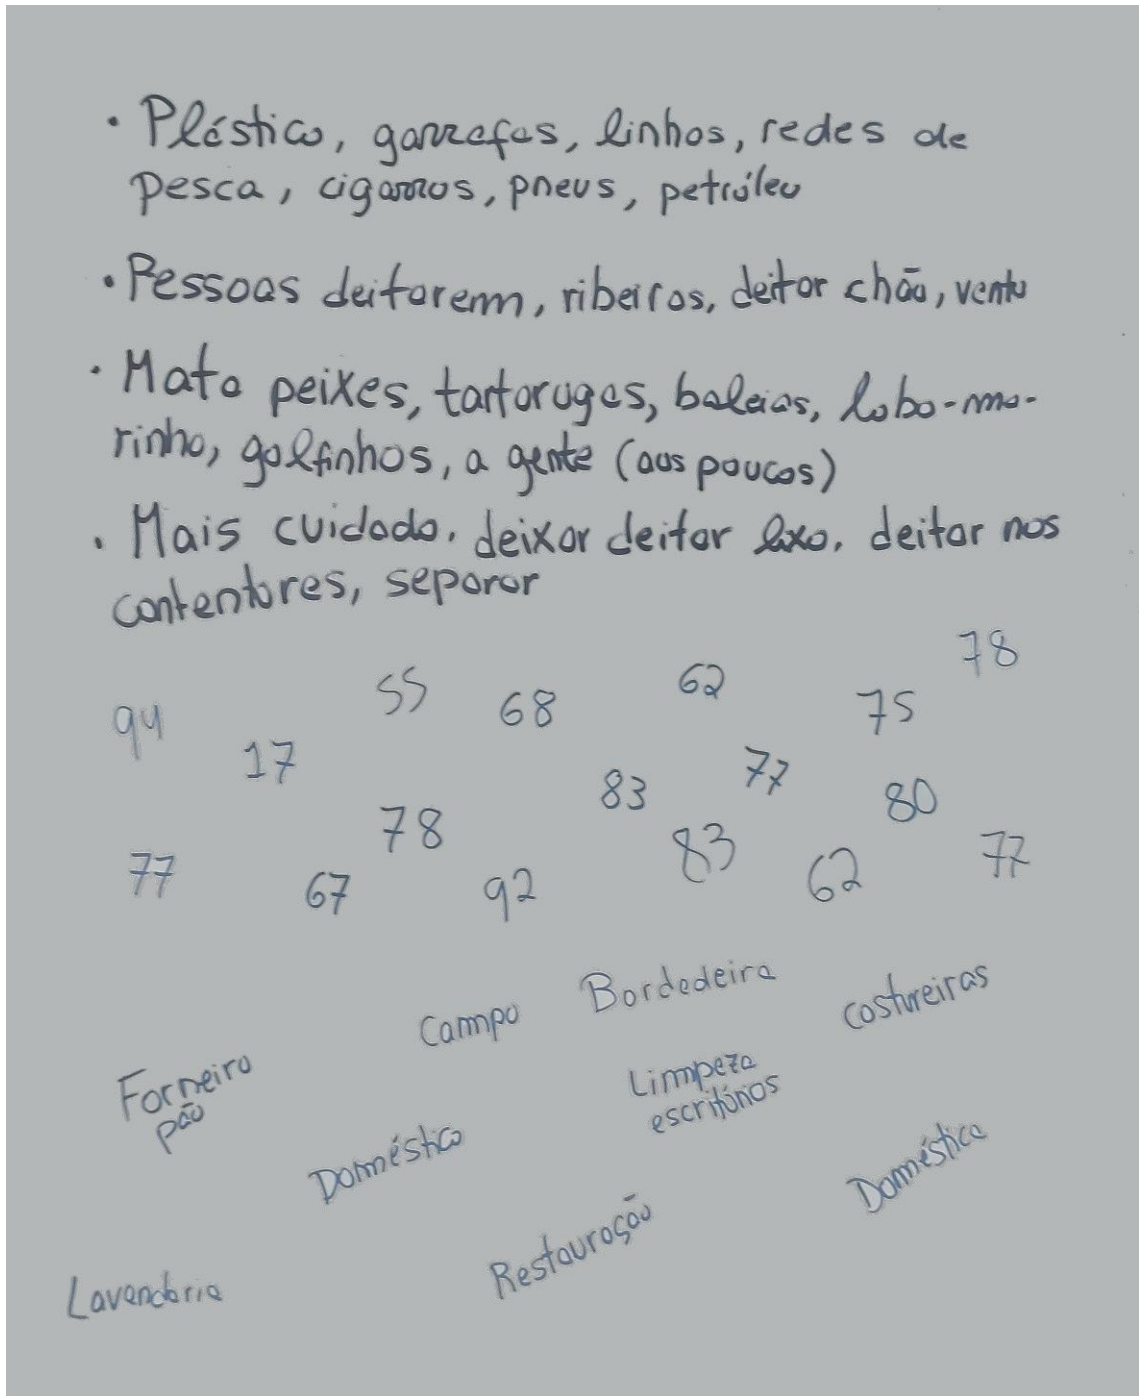 • Plástico, garrafas, linhos, redes de
pesca, cigarros, pneus, petróleo
• Pessoas deitarem, ribeiros, deitar chão, vento
• Mata peixes, tartarugas, baleias, lobo-ma-
rinho, golfinhos, a gente (aos poucos)
• Mais cuidado, deixar deitar lixo, deitar nos
contentores, separar
78
55 62
94 68 75
17 77
83 80
78 83
77 67 92 62 77
Bordadeira costureiras
Campo
Forneiro
pão
Limpeza
escritórios
Doméstica Doméstica
Restauração
Lavandaria